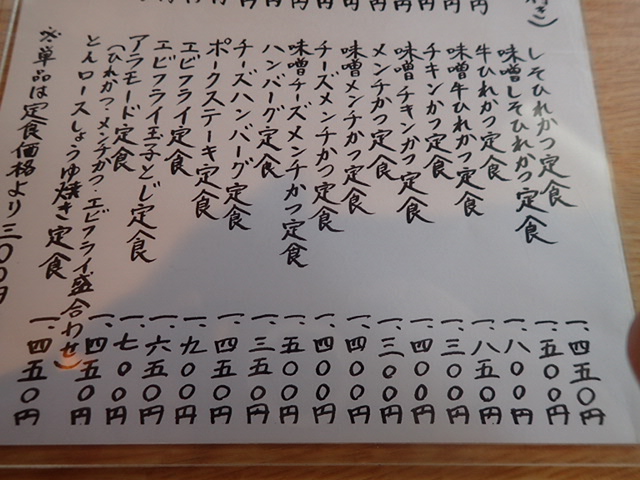 き)
円
円
円
円
円
円
円
円
しそひれかつ定食 一、四五〇円
味噌しそひれかつ定食 一、五〇〇円
牛ひれかつ定食 一、八〇〇円
味噌牛ひれかつ定食 一、八五〇円
チキンかつ定食 一、三〇〇円
味噌チキンかつ定食 一、四〇〇円
メンチかつ定食 一、三〇〇円
味噌メンチかつ定食 一、四〇〇円
チーズメンチかつ定食 一、四〇〇円
味噌チーズメンチかつ定食 一、五〇〇円
ハンバーグ定食 一、三五〇円
チーズハンバーグ定食 一、四五〇円
ポークステーキ定食 一、九〇〇円
エビフライ定食 一、六五〇円
エビフライ玉子とじ定食 一、七〇〇円
アラモード定食 一、四五〇円
(ひれかつ・メンチかつ・エビフライ盛合わせ)
とんロースしょうゆ焼き定食 一、四五〇円
※単品は定食価格より三〇〇円